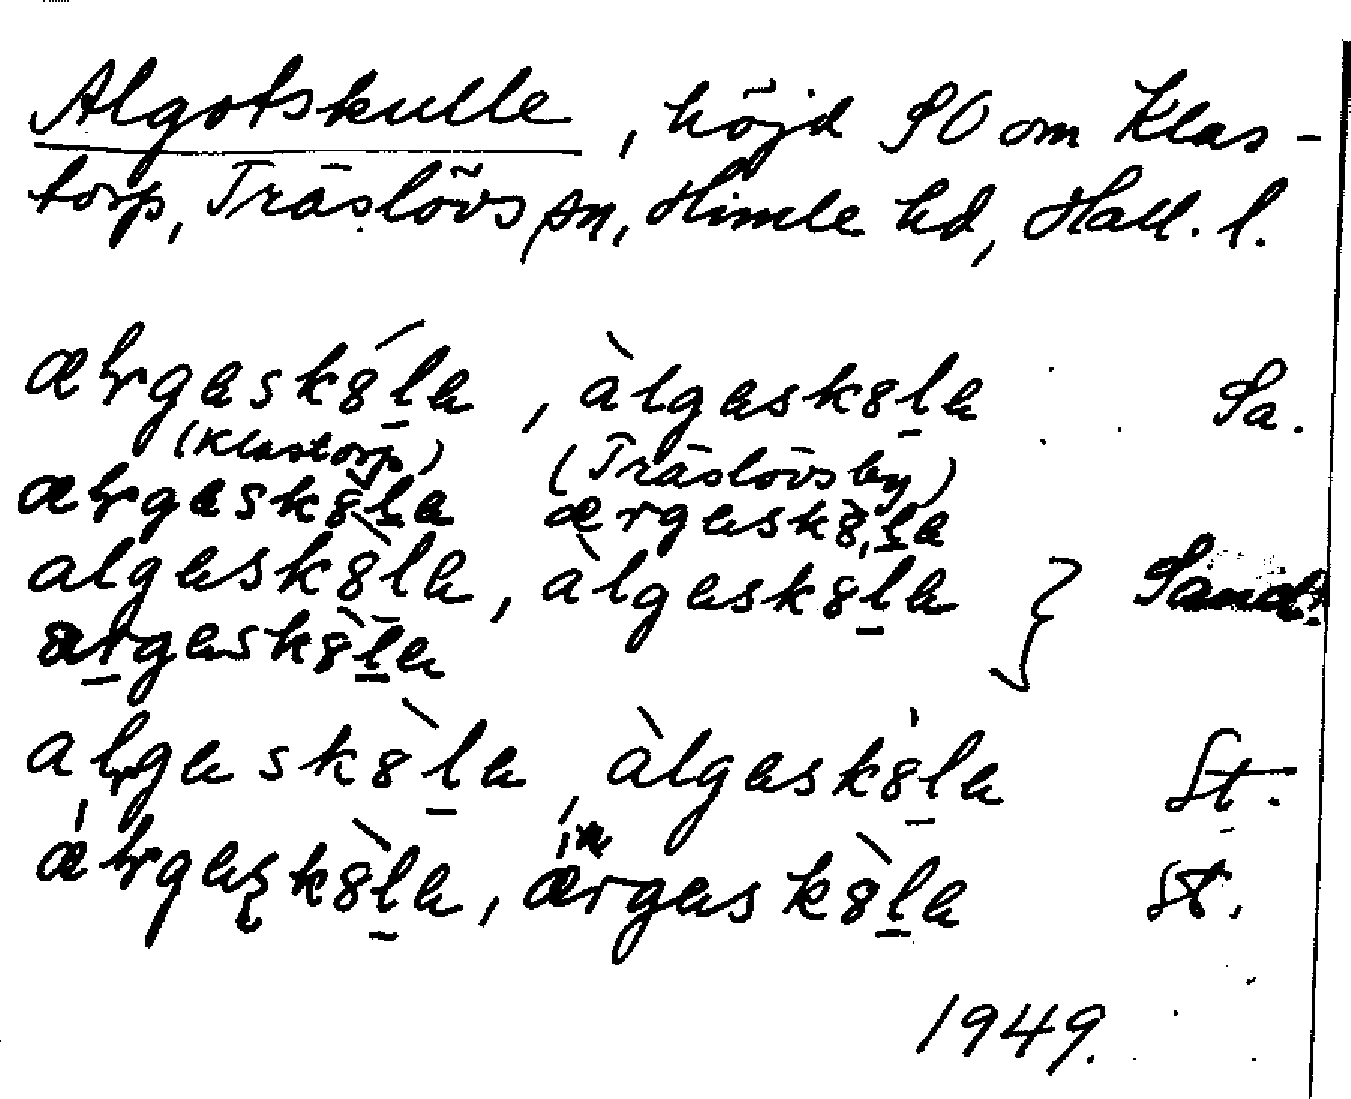 Algotskulle, höjd SO om Klas-
torp, Träslövs sn, Himle hd, Hall. l.
ælrgaskȣ́la, àlgaskȣla Sa.
(Klastorp) (Träslövs by)
ælrgaskȣ̀la ærgaskȣ̀la
algaskȣ̀la, àlgaskȣla } Sand.
ærgaskȣ̀la
algaskȣ̀la, àlgaskȣla St.
ælrgaskȣ̀la, ærgaskȣ̀la St.
1949.